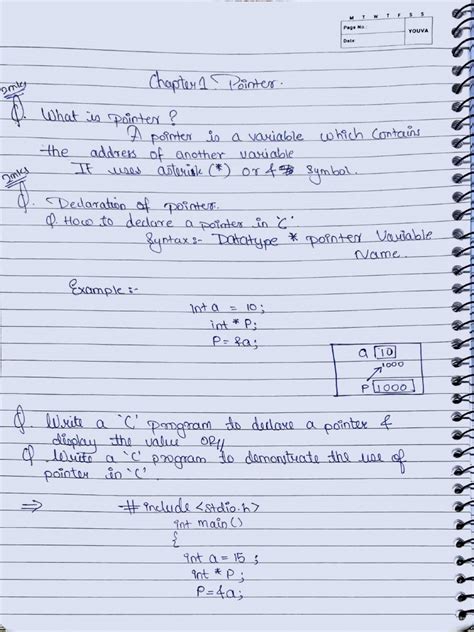 M T W T F S S
Page No.:
Date:
YOUVA
Chapter 1 Pointer.
2mks
Q. What is pointer?
A pointer is a variable which contains
the address of another variable
It uses asterisk (*) or & symbol.
2mks
Q. Declaration of pointer.
Q How to declare a pointer in 'C'.
Syntax:- Datatype * pointer Variable
Name.
Example:-
int a = 10;
int * P;
P = &a;
a 10
1000
P 1000
Q. Write a 'C' program to declare a pointer &
display the value OR//
Q Write a 'C' program to demonstrate the use of
pointer in 'C'.
⇒ # include <stdio.h>
int main()
{
int a = 15;
int * P;
P = &a;